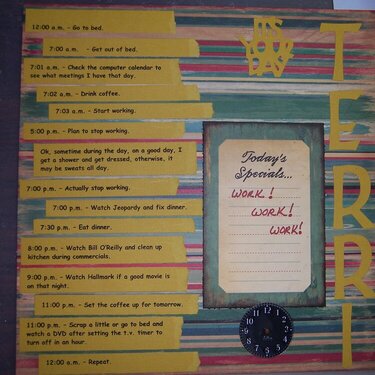 12:00 a.m. – Go to bed.
7:00 a.m. – Get out of bed.
7:01 a.m. – Check the computer calendar to
see what meetings I have that day.
7:02 a.m. – Drink coffee.
7:03 a.m. – Start working.
5:00 p.m. – Plan to stop working.
Ok, sometime during the day, on a good day, I
get a shower and get dressed, otherwise, it
may be sweats all day.
7:00 p.m. – Actually stop working.
7:00 p.m. – Watch Jeopardy and fix dinner.
7:30 p.m. – Eat dinner.
8:00 p.m. – Watch Bill O'Reilly and clean up
kitchen during commercials.
9:00 p.m. – Watch Hallmark if a good movie is
on that night.
11:00 p.m. – Set the coffee up for tomorrow.
11:00 p.m. – Scrap a little or go to bed and
watch a DVD after setting the t.v. timer to
turn off in an hour.
12:00 a.m. – Repeat.
IT'S
YOUR
DAY
Today's
Specials...
WORK!
WORK!
WORK!
TERRI